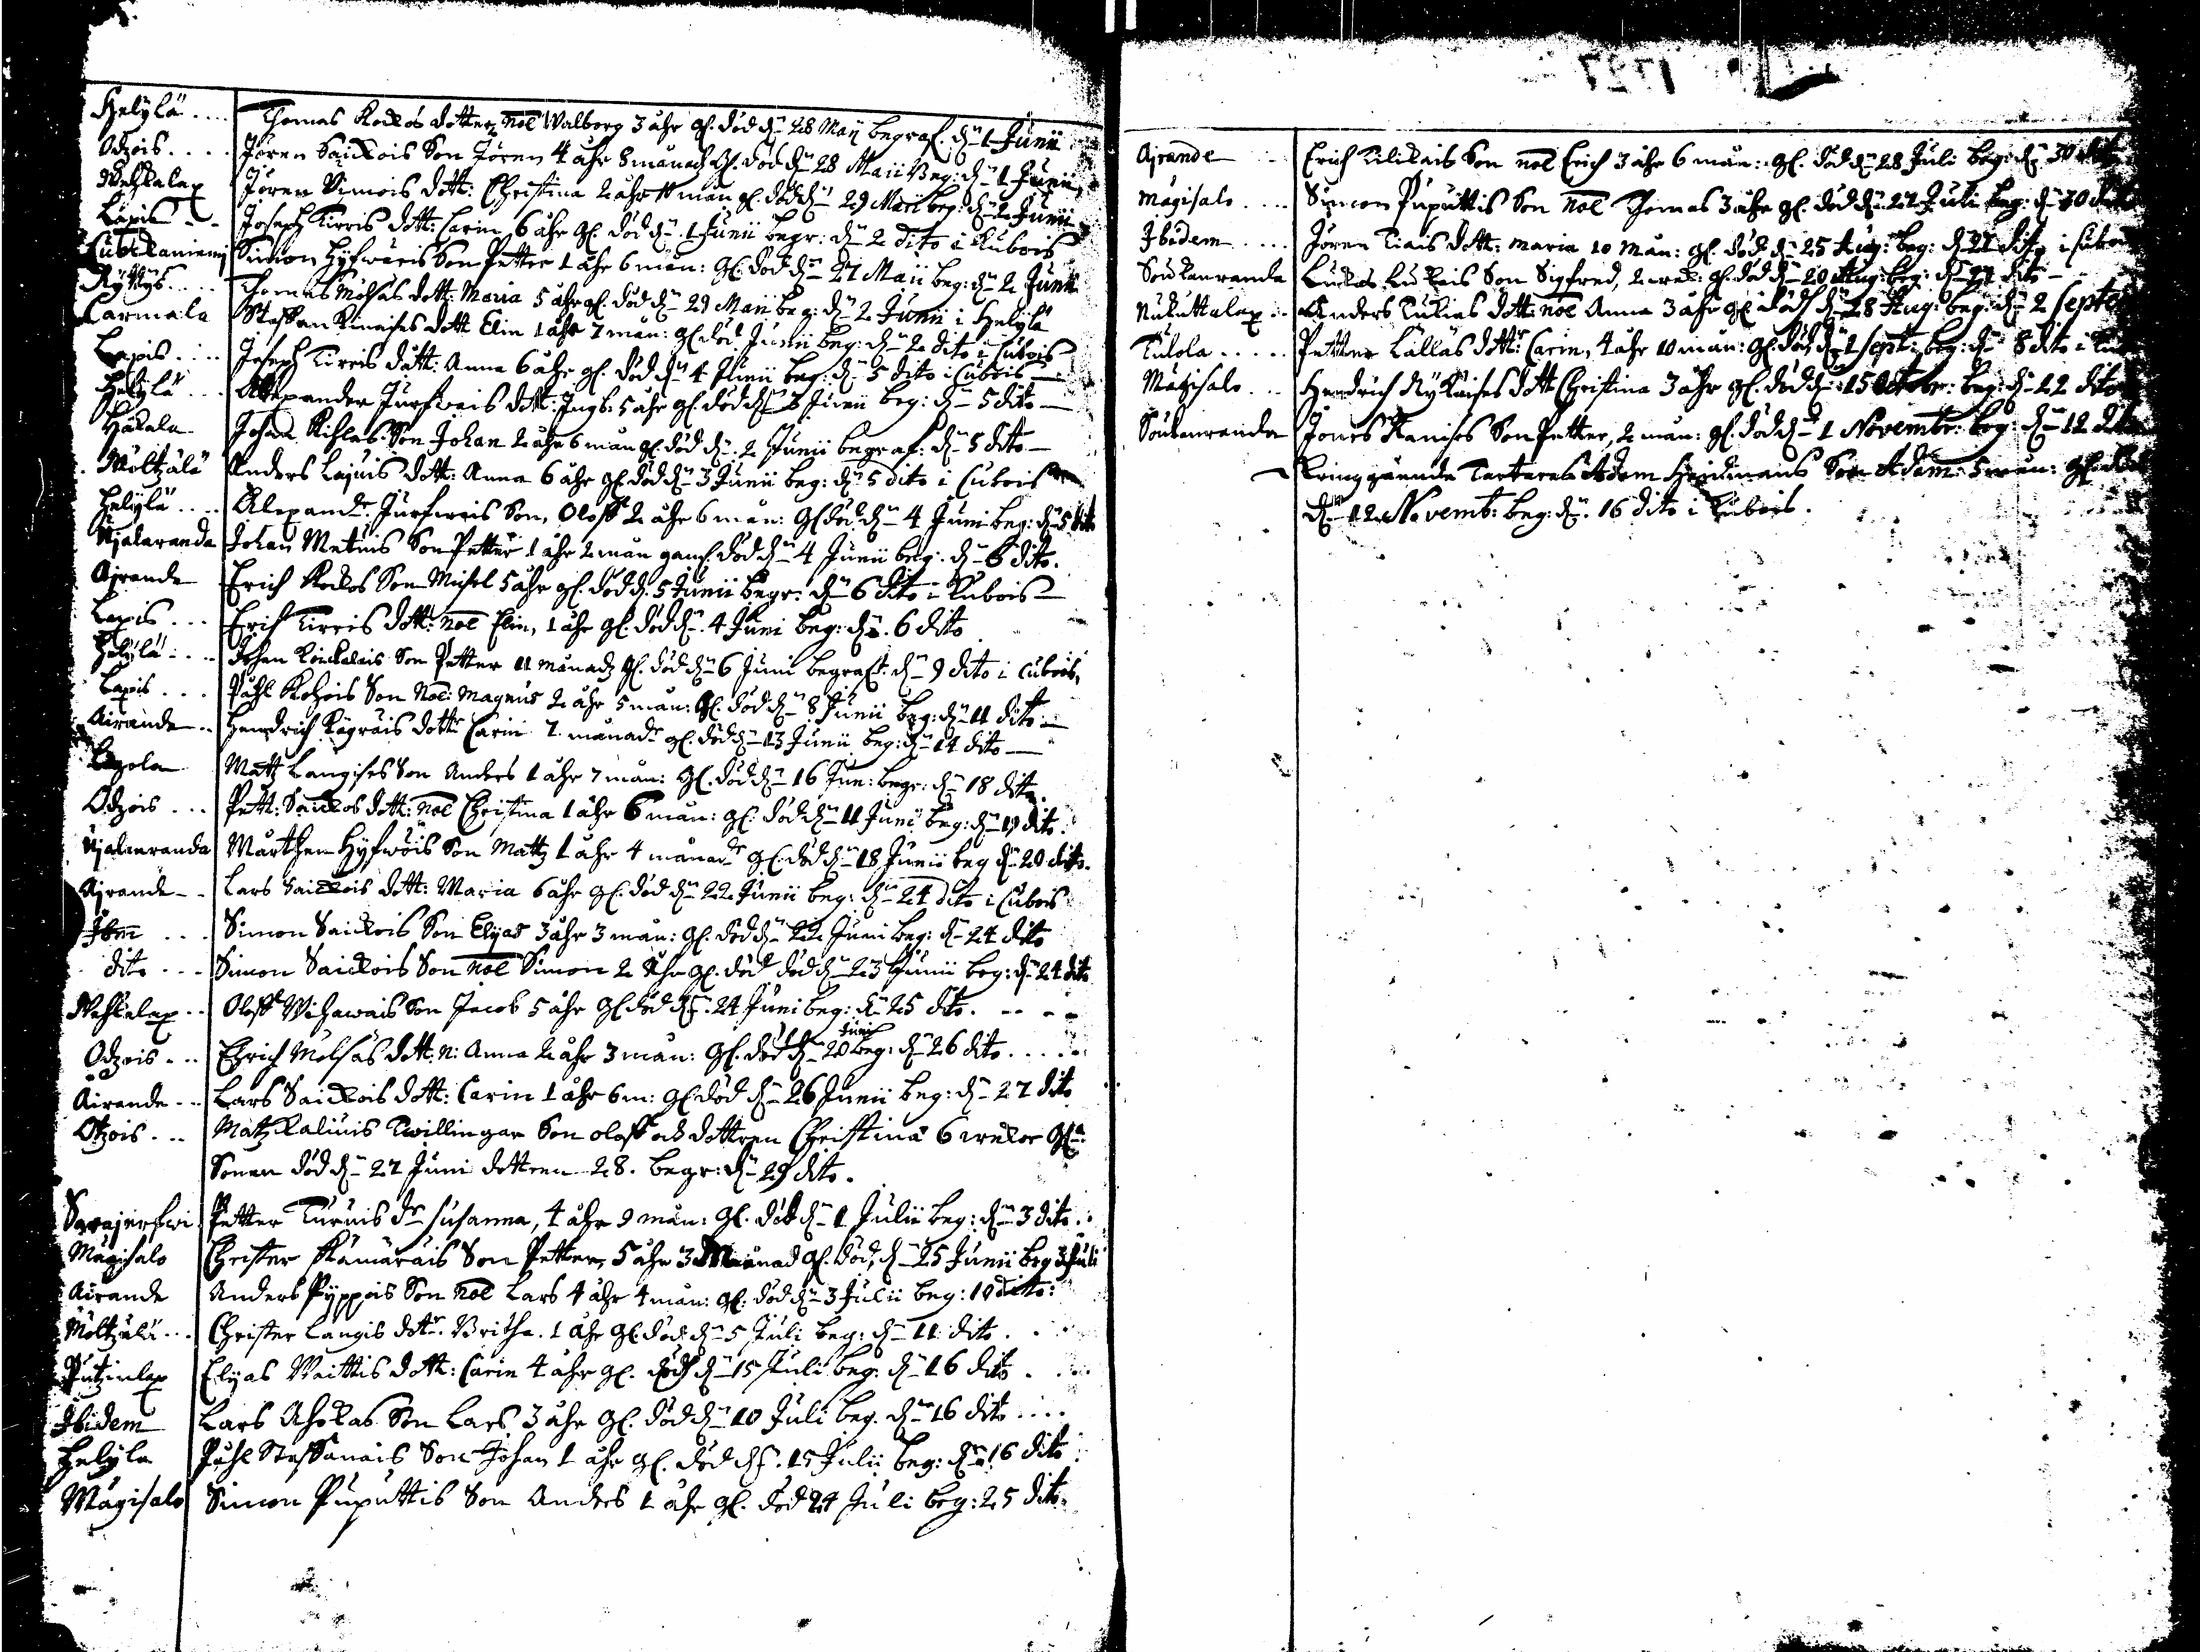 Helylä .... Thomas Kockos dotter nol Walborg 3 åhr gl. död dn 28 Maij begraf. dn 1 Junii
Odzois .... Jören Saickois Son Jören 4 åhr 8 månad gl. död dn 28 Maii Beg: dn 1 Junii
Wehkalax Jören Simois dott: Christina 2 åhr mån gl. död dn 29 Maii beg: dn 2 Junii
Lapis Joseph Kirris dott: Carin 6 åhr gl. död dn 1 Junii begr: dn 2 dito i Kubois
Simon Hyfwäris Son Petter 1 åhr 6 mån: gl. död dn 27 Maii beg: dn 2 Junii
Ryttys .... Thomas Molsas dott: Maria 5 åhr gl. död dn 29 Maii beg: dn 2 Junii i Helylä
Carmala Staffan Kinaises dott Elin 1 åhr 7 mån: gl. död Junii beg: dn 2 dito i Cubois
Lapis .... Joseph Kirris dått: Anna 6 åhr gl. död dn 4 Junii beg: dn 5 dito i Cubois
Helylä ... Allexander Jurfwais dott: Ingb: 5 åhr gl. död dn 3 Junii beg: dn 5 dito
Hakala Johan Kihlas Son Johan 2 åhr 6 mån gl. död dn 2 Junii begraf: dn 5 dito
Möltzälä Anders Lajuis dott: Anna 6 åhr gl. död dn 3 Junii beg: dn 5 dito i Cubois
Helylä .... Alexandr. Jurfweis Son, Oloff 2 åhr 6 mån: gl död dn 4 Juni beg: dn 5 dito
Njalaranda Johan Metuis Son Petter 1 åhr 2 mån gaml död dn 4 Junii beg: dn 6 dito.
Ajrande Erich Kockos Son Michel 5 åhr gl. död d. 5 Junii begr: dn 6 dito i Kubois
Lapis ... Erich Kirris dott: nol Elin, 1 åhr gl. död dn. 4 Juni beg: dn. 6 dito
Helylä .... Johan Son Petter 11 månadz gl. död dn 6 Juni begraft: dn 9 dito i Cubois,
Lapis ... Påhl Kohois Son Nol: Magnus 2 åhr 5 mån: gl. död dn 8 Junii beg: dn 11 dito
Airande .. Hendrich Kägräis dottr Carin 7 månadr gl. död dn 13 Junii beg: dn 14 dito
Matz Langises Son Anders 1 åhr 7 mån: gl. död dn 16 Jun: begr: dn 18 dito.
Odzois ... Pett: Saickos dott: nol Christina 1 åhr 6 mån: gl. död dn 11 Juni beg: dn 19 dito.
Njalaranda Mårthen Hyfwöis Son Mattz 1 åhr 4 månadr gl. död dn 18 Junii beg dn 20 dito.
Ajrande .. Lars Saickois dott: Maria 6 åhr gl. död dn 22 Junii beg: dn 24 dito i Cubois
Ibm ... Simon Saickois Son Elyas 3 åhr 3 mån: gl. död dn 22 Juni beg: dn 24 dito
dito ... Simon Saickois Son nol Simon 2 åhr gl. död död dn 23 Junii beg: dn 24 dito
Wehkalax .. Oloff Wihawais Son Jacob 5 åhr gl död dn. 24 Juni beg: dn 25 dito. ....
Odzois ... Ehrich Molsas dott. n: Anna 2 åhr 3 mån: gl. död dn 20 Junij beg: dn 26 dito .....
Airande ... Lars Saickois dott: Carin 1 åhr 6 m: gl död dn 26 Junii beg: dn 27 dito
Otzois ... Matz Kaliuis Twillingar Son oloff och dottren Christina 6 weckor gl:
Sonen död dn 27 Juni dottren 28. begr: dn 29 dito.
Sarajerfwi Petter Turuis dr Susanna, 4 åhr 9 mån: gl. död dn 1 Julii beg: dn 3 dito..
Mägisalo Christer Kämäräis Son Petter, 5 åhr 3 Månad gl. död, dn 25 Junii beg 3 Juli
Airande Anders Pyppöis Son nol Lars 4 åhr 4 mån: gl: död dn 3 Julii beg: 10 dito:
Möltzälä ... Christer Langis dottr. Britha. 1 åhr gl. död. dn 5 Juli beg: dn 11 dito. ...
Putzinlax Elyas Waittis dott: Carin 4 åhr gl. död dn 15 Juli beg: dn 16 dito ....
Ibidem Lars Ahokas Son Lars 3 åhr gl. död dn 10 Juli beg. dn 16 dito ....
Helyla Påhl Staffanais Son Johan 1 åhr gl. död dn. 15 Julii beg: dn 16 dito
Mägisalo Simon Puputtis Son Anders 1 åhr gl. död 24 Juli beg: 25 dito.
1727
Ajrande Erich Kilikais Son nol Erich 3 åhr 6 mån: gl. död dn 28 Juli beg: dn 30 dito
Mägisalo .... Simon Puputtis Son nol Thomas 3 åhr gl. död dn 27 Juli beg: dn 30 dito
Ibidem .... Jören Kiais dott: Maria 10 Mån: gl. död dn 25 Aug: beg: dn 27 dito i
Soukanranda Lucas Luckais Son Sigfred, 2 wek: gl. död dn 20 Aug: beg: dn 27 dito
Nukuttalax .. Anders Kukias dott: nol Anna 3 åhr gl död dn 28 Aug: beg: dn 2 Septe
Tulola ..... Petter Lallas dottr Carin, 4 åhr 10 mån: gl. död dn 1 Sept: beg: dn 8 dito i
Mägisalo ... Hendrich Nykäises dott Christina 3 åhr gl. död dn 15 October: beg: dn 22 dito
Soukanranda Jöns Kanises Son Petter, 2 mån: gl. död dn 1 Novembr: beg: dn 12 dito
Kringgående Tartaren Adam Hindmans Son Adam 5 mån: gl. död
dn 12 Novemb: beg: dn. 16 dito i Kubois.